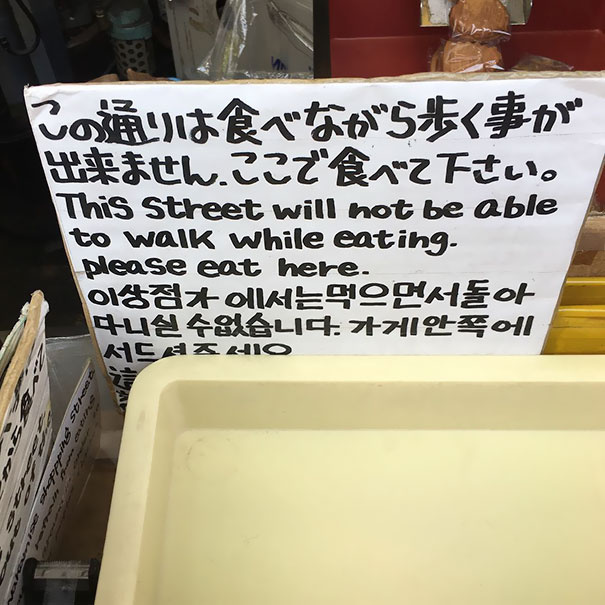 この通りは食べながら歩く事が
出来ません.ここで食べて下さい。
This Street will not be able
to walk while eating.
please eat here.
이상점가에서는먹으면서돌아
다니실 수없습니다. 가게안쪽에
서드셔주세요
shopping street